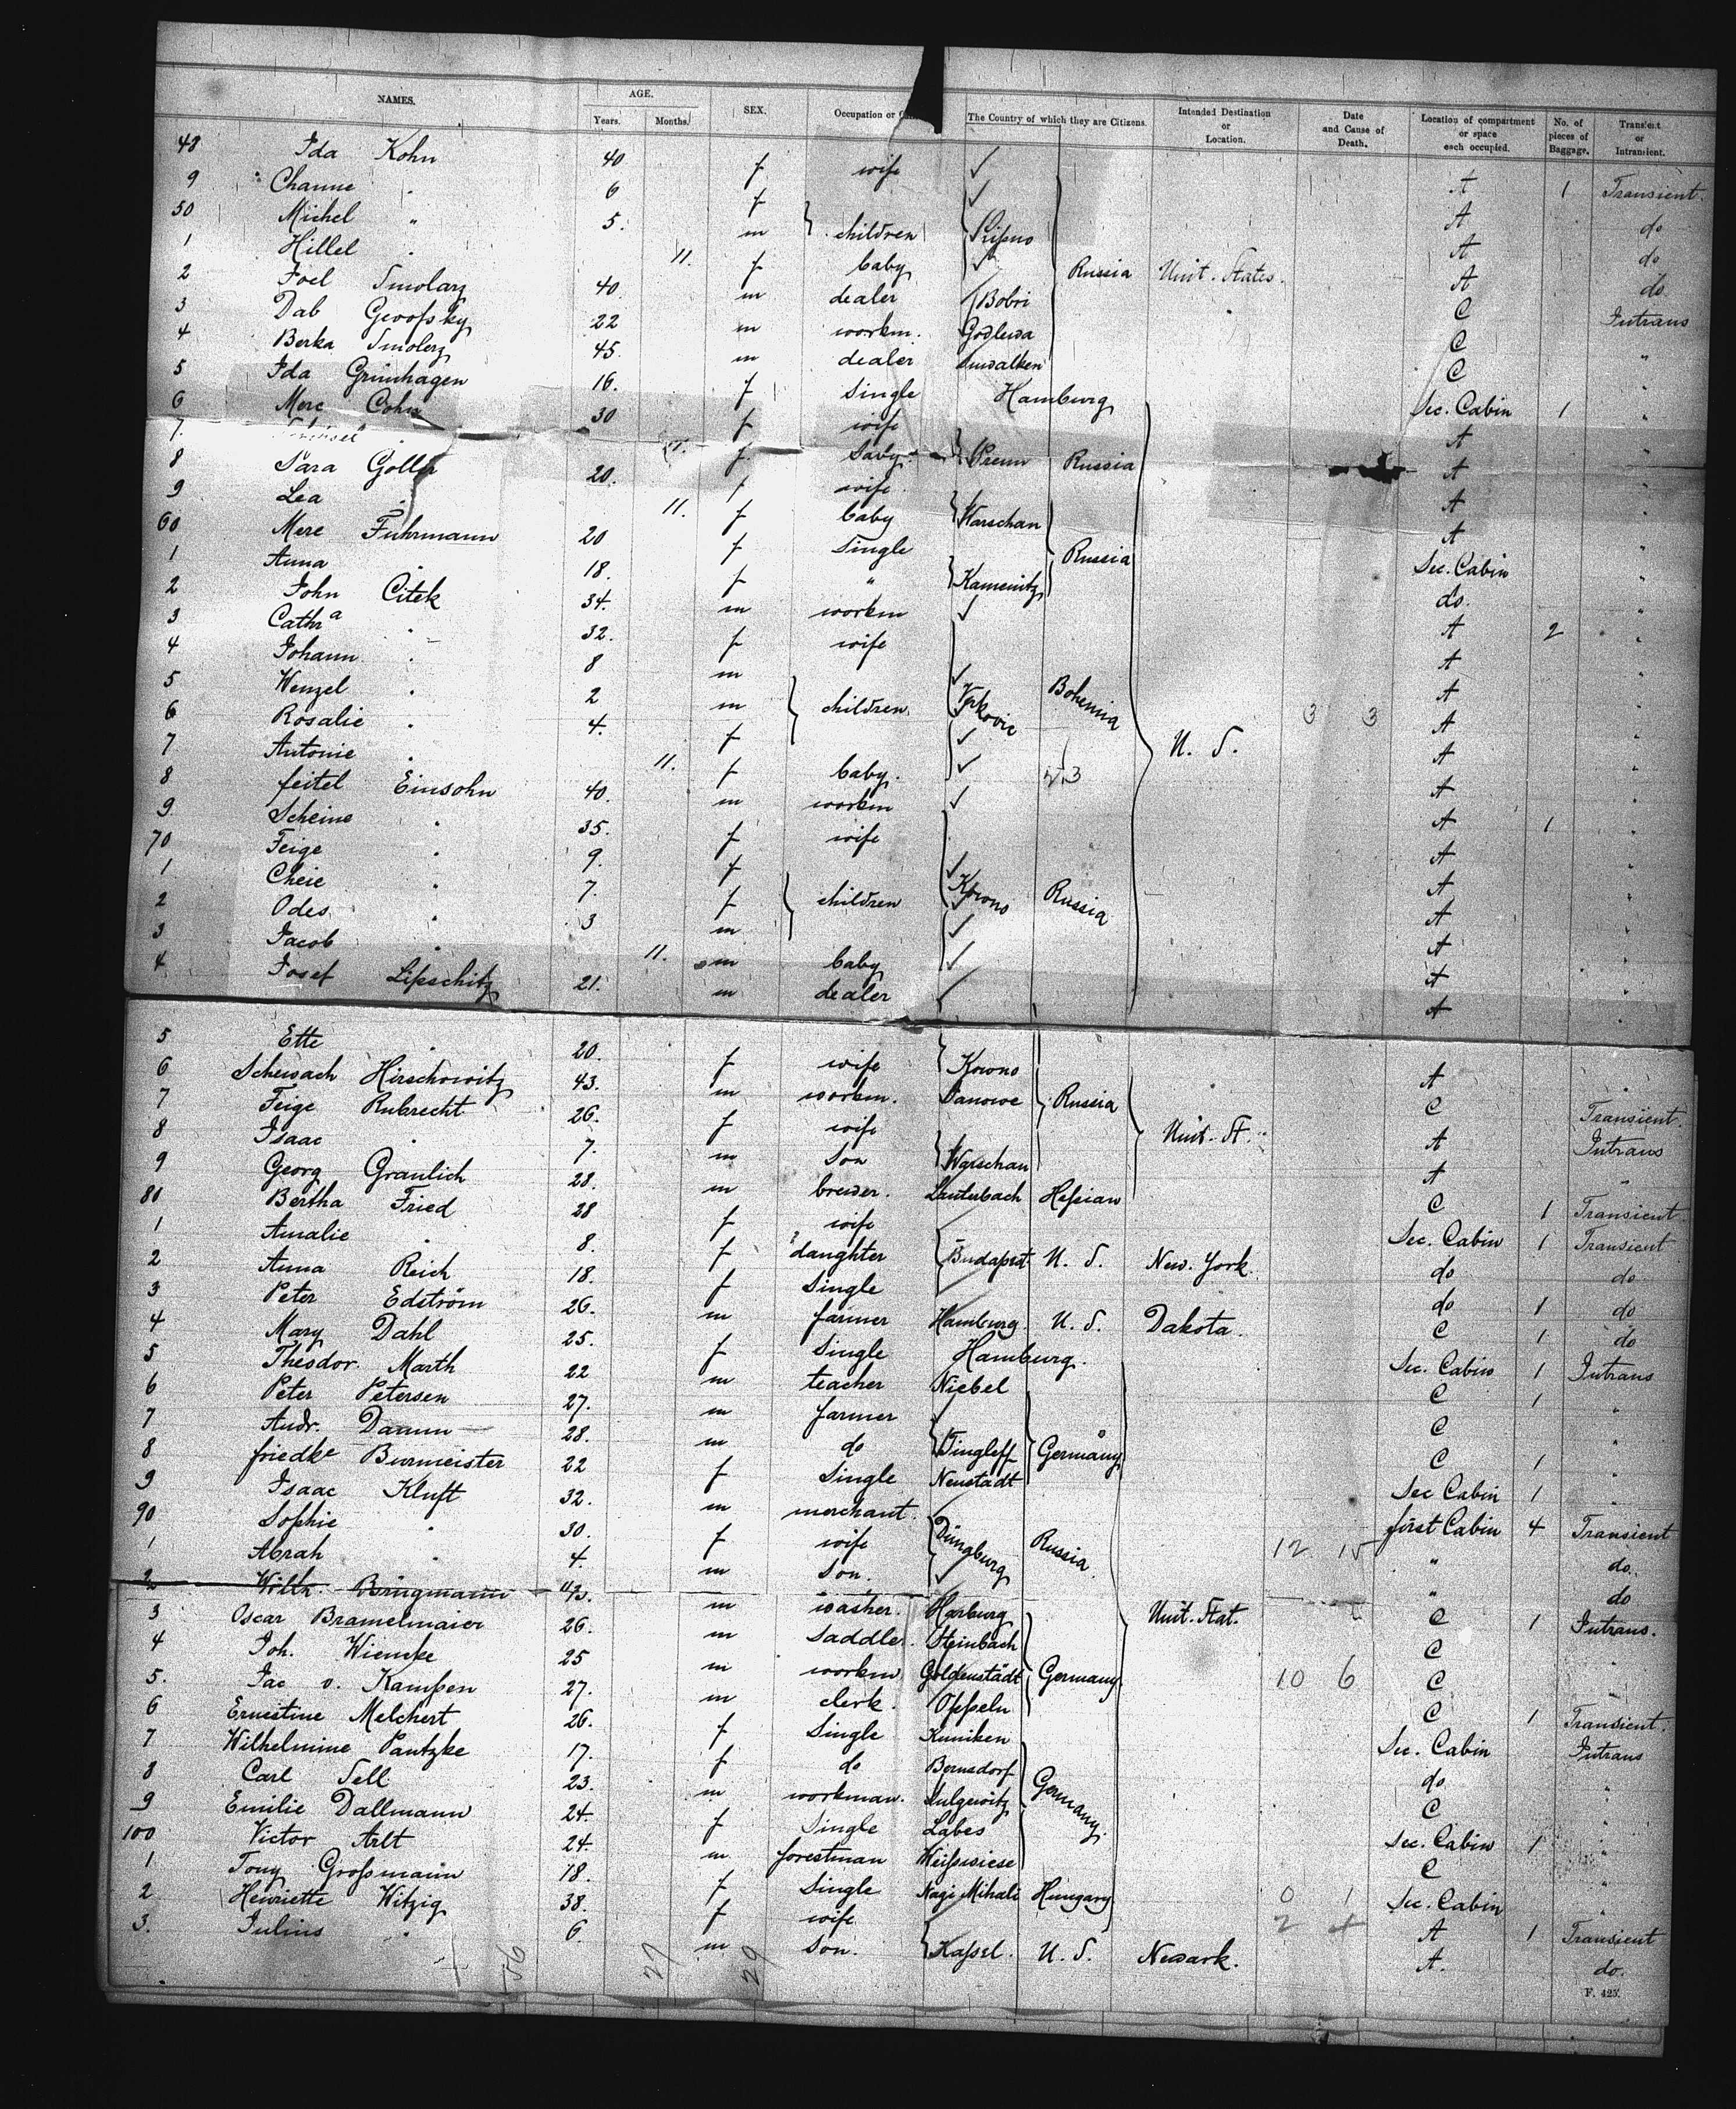 NAMES. AGE. Years. Months. SEX. Occupation or The Country of which they are Citizens. Intended Destination or Location. Date and Cause of Death. Location of compartment or space each occupied. No. of pieces of Baggage. Transient or Intransient.
48 Ida Kohn 40 f wife A 1 Transient.
9 Channe " 6 f A do
50 Michel " 5. m children Lipno A do
1 Hillel " 11. f baby Russia Unit. States. A do
2 Joel Smolarz 40. m dealer Bobri C Intrans
3 Dab 22 m workm. Godlewa C "
4 Berka Smolerz 45. m dealer Suwalken C "
5 Ida Grünhagen 16. f Single Hamburg Sec. Cabin 1 "
6 Mere Cohn 30 f wife A "
7. f. baby. Prenn Russia A "
8 Sara Goller 20. f wife. A "
9 Lea " 11. f baby Warschau A "
60 Mere Fuhrmann 20 f Single Russia Sec. Cabin "
1 Anna " 18. f " Kamenitz do. "
2 John Citek 34. m workm A 2 "
3 Cathra " 32. f wife A "
4 Johann " 8 m A "
5 Wenzel " 2 m children Bohemia 3 3 A "
6 Rosalie " 4. f U. S. A "
7 Antonie " 11. f baby. A "
8 feitel Einsohn 40. m workm A 1 "
9. Scheine " 35. f wife A "
70 Feige " 9. f A "
1 Cheie " 7. f children Kowno Russia A "
2 Odes " 3 m A "
3 Jacob " 11. m baby A "
4 Josef Lipschitz 21. m dealer A "
5 Ette " 20. f wife Kowno A "
6 Scheisach Hirschowitz 43. m workm. Janowe Russia C Transient.
7 Feige Rubrecht 26. f wife Unit. St. A Intrans
8 Isaac " 7. m Son Warschau A "
9 Georg Graulich 28. m brewer. Lauterbach Hessian C 1 Transient.
80 Bertha Fried 28 f wife Sec. Cabin 1 Transient
1 Amalie " 8. f daughter Budapest U. S. New York. do do
2 Anna Reich 18. f Single do 1 do
3 Peter Edström 26. m farmer Hamburg. U. S. Dakota. C 1 do
4 Mary Dahl 25. f Single Hamburg. Sec. Cabin 1 Intrans
5 Theodor Marth 22 m teacher Niebel C 1 "
6 Peter Petersen 27. m farmer C "
7 Andr. Damm 28. m do Tingleff Germany C 1 "
8 friedke Burmeister 22 f Single Neustadt Sec Cabin 1 "
9 Isaac Kluft 32. m merchant. first Cabin 4 Transient
90 Sophie " 30. f wife Dünaburg Russia. 12 15 " do.
1 Abrah " 4. m Son. " do
2 Wilh. Bringmann 43. m washer. Harburg Unit. Stat. C 1 Intrans.
3 Oscar Bramelmaier 26. m Saddler. Steinbach C "
4 Joh. Wiencke 25 m workm Goldenstädt Germany 10 6 C "
5. Jac v. Kampen 27. m clerk. Oppeln C 1 Transient.
6 Ernestine Melchert 26. f Single Kuniken Sec. Cabin Intrans
7 Wilhelmine Pantzke 17. f do Bernsdorf do "
8 Carl Sell 23. m workman. Sulgewitz Germany. C "
9 Emilie Dallmann 24. f Single Labes Sec. Cabin 1 "
100 Victor Arlt 24. m forestman Weißwiese C "
1 Tony Großmann 18. f Single Nagi Mihali Hungary 0 1 Sec. Cabin "
2 Henriette Witzig 38. f wife 2 A 1 Transient
3. Julius " 6. m Son. Kassel. U. S. Newark. A. do.
56 27 29
F. 425.